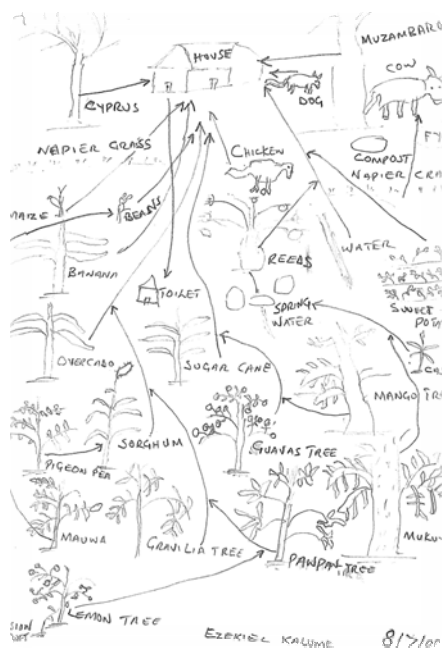 HOUSE
MUZAMBARO
CYPRUS
DOG
COW
NAPIER GRASS
CHICKEN
COMPOST
NAPIER
MAIZE
BEANS
BANANA
REEDS
WATER
TOILET
SPRING
WATER
SWEET
OVERCADO
SUGAR CANE
MANGO TREE
SORGHUM
GUAVAS TREE
PIGEON PEA
MAUWA
GRAVILIA TREE
PAWPAW TREE
LEMON TREE
EZEKIEL KALUME